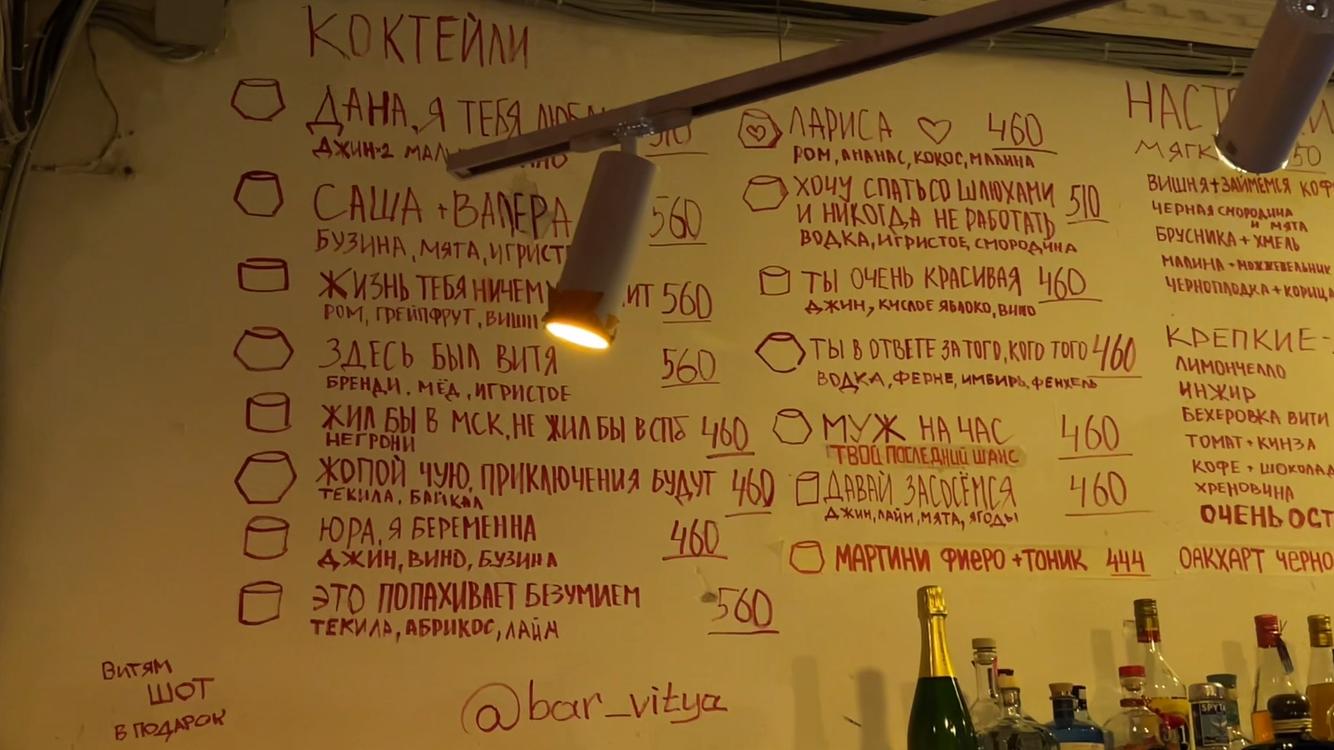 КОКТЕЙЛИ
ДАНА, Я ТЕБЯ
ДЖИН×2
САША + ВАЛЕРА 560
БУЗИНА, МЯТА, ИГРИСТ
ЖИЗНЬ ТЕБЯ НИЧЕМ ИТ 560
РОМ, ГРЕЙПФРУТ, ВИШН
ЗДЕСЬ БЫЛ ВИТЯ 560
БРЕНДИ, МЁД, ИГРИСТОЕ
ЖИЛ БЫ В МСК, НЕ ЖИЛ БЫ В СПБ 460
НЕГРОНИ
ЖОПОЙ ЧУЮ, ПРИКЛЮЧЕНИЯ БУДУТ 460
ТЕКИЛА, БАЙКАЛ
ЮРА, Я БЕРЕМЕННА 460
ДЖИН, ВИНО, БУЗИНА
ЭТО ПОПАХИВАЕТ БЕЗУМИЕМ 560
ТЕКИЛА, АБРИКОС, ЛАЙМ
ВИТЯМ
ШОТ
В ПОДАРОК
@bar_vitya
ЛАРИСА ♡ 460
РОМ, АНАНАС, КОКОС, МАЛИНА
ХОЧУ СПАТЬ СО ШЛЮХАМИ 510
И НИКОГДА НЕ РАБОТАТЬ
ВОДКА, ИГРИСТОЕ, СМОРОДИНА
ТЫ ОЧЕНЬ КРАСИВАЯ 460
ДЖИН, КИСЛОЕ ЯБЛОКО, ВИНО
ТЫ В ОТВЕТЕ ЗА ТОГО, КОГО ТОГО 460
ВОДКА, ФЕРНЕ, ИМБИРЬ, ФЕНХЕЛЬ
МУЖ НА ЧАС 460
ТВОЙ ПОСЛЕДНИЙ ШАНС
ДАВАЙ ЗАСОСЁМСЯ 460
ДЖИН, ЛАЙМ, МЯТА, ЯГОДЫ
МАРТИНИ ФИЕРО + ТОНИК 444
НАСТ
МЯГК 50
ВИШНЯ + ЗАЙМЕМСЯ КОФ
ЧЕРНАЯ СМОРОДИНА
И МЯТА
БРУСНИКА + ХМЕЛЬ
МАЛИНА + МОЖЖЕВЕЛЬНИК
ЧЕРНОПЛОДКА + КОРИЦА
КРЕПКИЕ -
ЛИМОНЧЕЛЛО
ИНЖИР
БЕХЕРОВКА ВИТИ
ТОМАТ + КИНЗА
КОФЕ + ШОКОЛАД
ХРЕНОВИНА
ОЧЕНЬ ОСТ
ОАКХАРТ ЧЕРНО